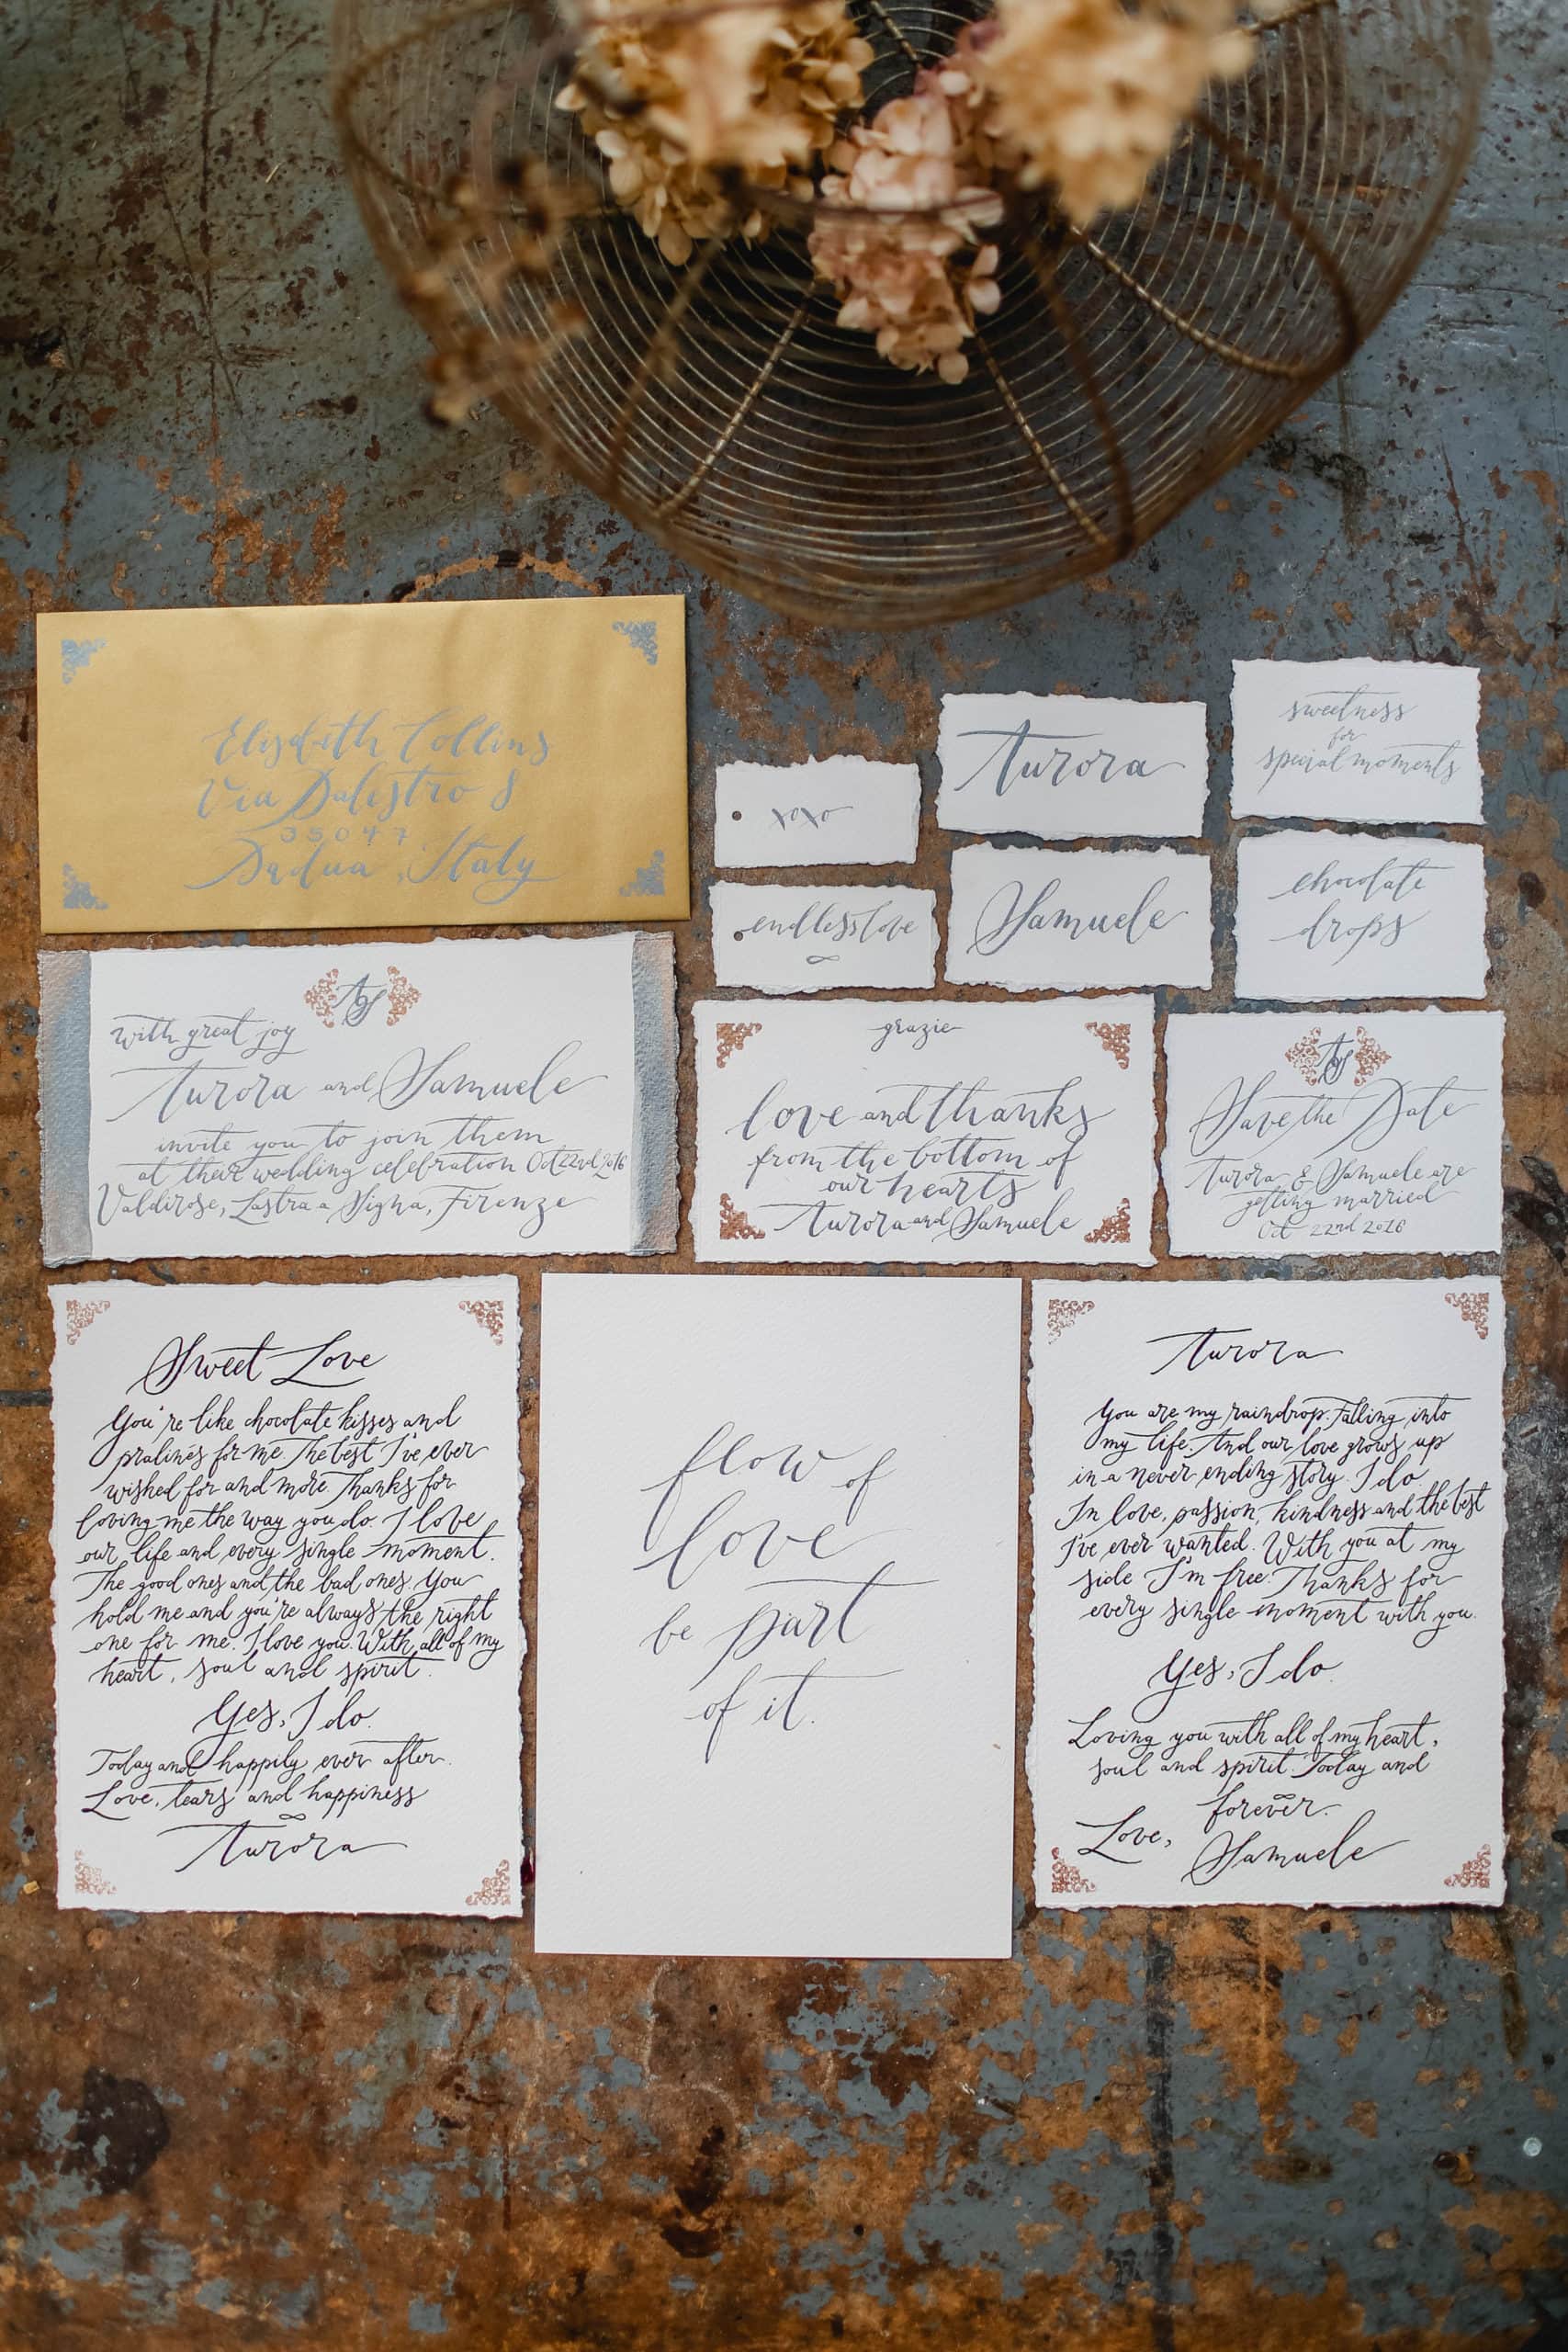 Elizabeth Collins
Via Palestro 8
35047
Padua, Italy
xoxo
endless love
∞
Aurora
Samuele
sweetness
for
special moments
chocolate
drops
AS
with great joy
Aurora and Samuele
invite you to join them
at their wedding celebration Oct 22nd 2016
Valdirose, Lastra a Signa, Firenze
grazie
love and thanks
from the bottom of
our hearts
Aurora and Samuele
AS
Save the Date
Aurora & Samuele are
getting married
Oct 22nd 2016
Sweet Love
You're like chocolate kisses and
pralines for me. The best I've ever
wished for and more. Thanks for
loving me the way you do. I love
our life and every single moment.
The good ones and the bad ones. You
hold me and you're always the right
one for me. I love you. With all of my
heart, soul and spirit.
Yes, I do.
Today and happily ever after.
Love, tears and happiness
∞
Aurora
flow of
love
be part
of it.
Aurora
You are my raindrop. Falling into
my life. And our love grows up
in a never ending story. I do
In love, passion, kindness and the best
I've ever wanted. With you at my
side I'm free. Thanks for
every single moment with you.
Yes, I do.
Loving you with all of my heart,
soul and spirit. Today and
∞
forever.
Love,
Samuele